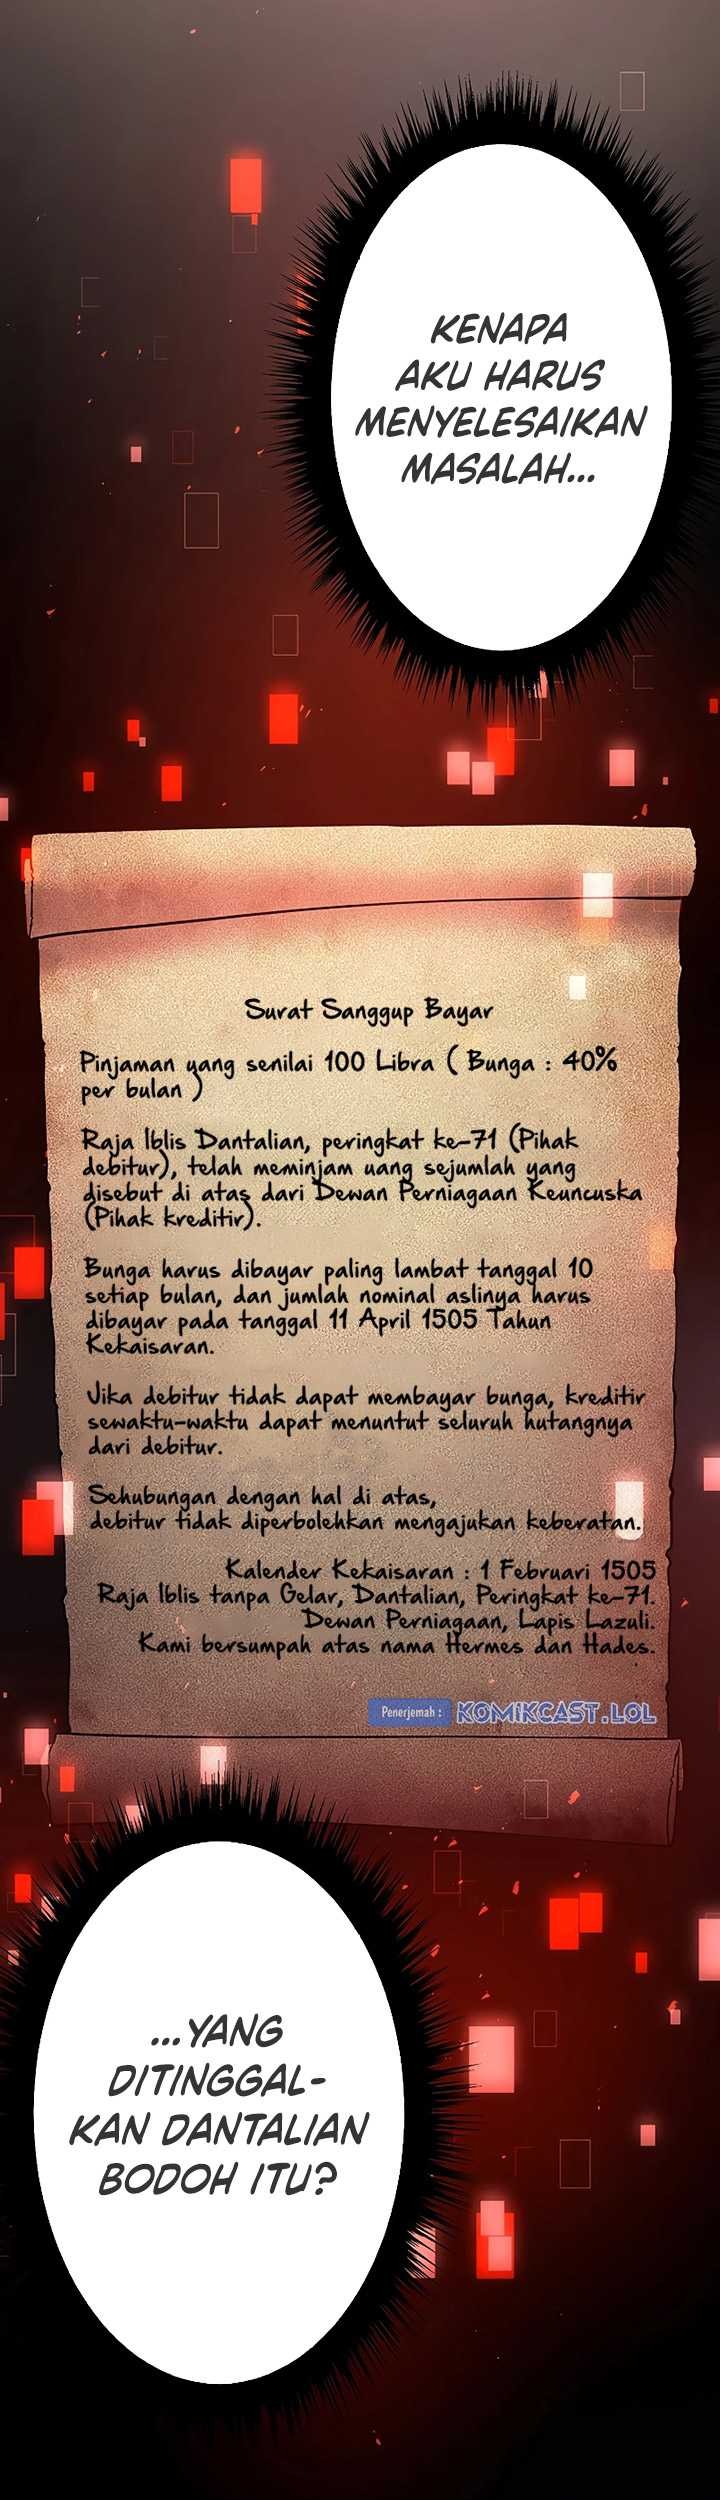 KENAPA
AKU HARUS
MENYELESAIKAN
MASALAH...
Surat Sanggup Bayar
Pinjaman yang senilai 100 Libra ( Bunga : 40%
per bulan )
Raja Iblis Dantalian, peringkat ke-71 (Pihak
debitur), telah meminjam uang sejumlah yang
disebut di atas dari Dewan Perniagaan Keuncuska
(Pihak kreditir).
Bunga harus dibayar paling lambat tanggal 10
setiap bulan, dan jumlah nominal aslinya harus
dibayar pada tanggal 11 April 1505 Tahun
Kekaisaran.
Jika debitur tidak dapat membayar bunga, kreditir
sewaktu-waktu dapat menuntut seluruh hutangnya
dari debitur.
Sehubungan dengan hal di atas,
debitur tidak diperbolehkan mengajukan keberatan.
Kalender Kekaisaran : 1 Februari 1505
Raja Iblis tanpa Gelar, Dantalian, Peringkat ke-71.
Dewan Perniagaan, Lapis Lazuli.
Kami bersumpah atas nama Hermes dan Hades.
Penerjemah : KOMIKCAST.LOL
...YANG
DITINGGAL-
KAN DANTALIAN
BODOH ITU?